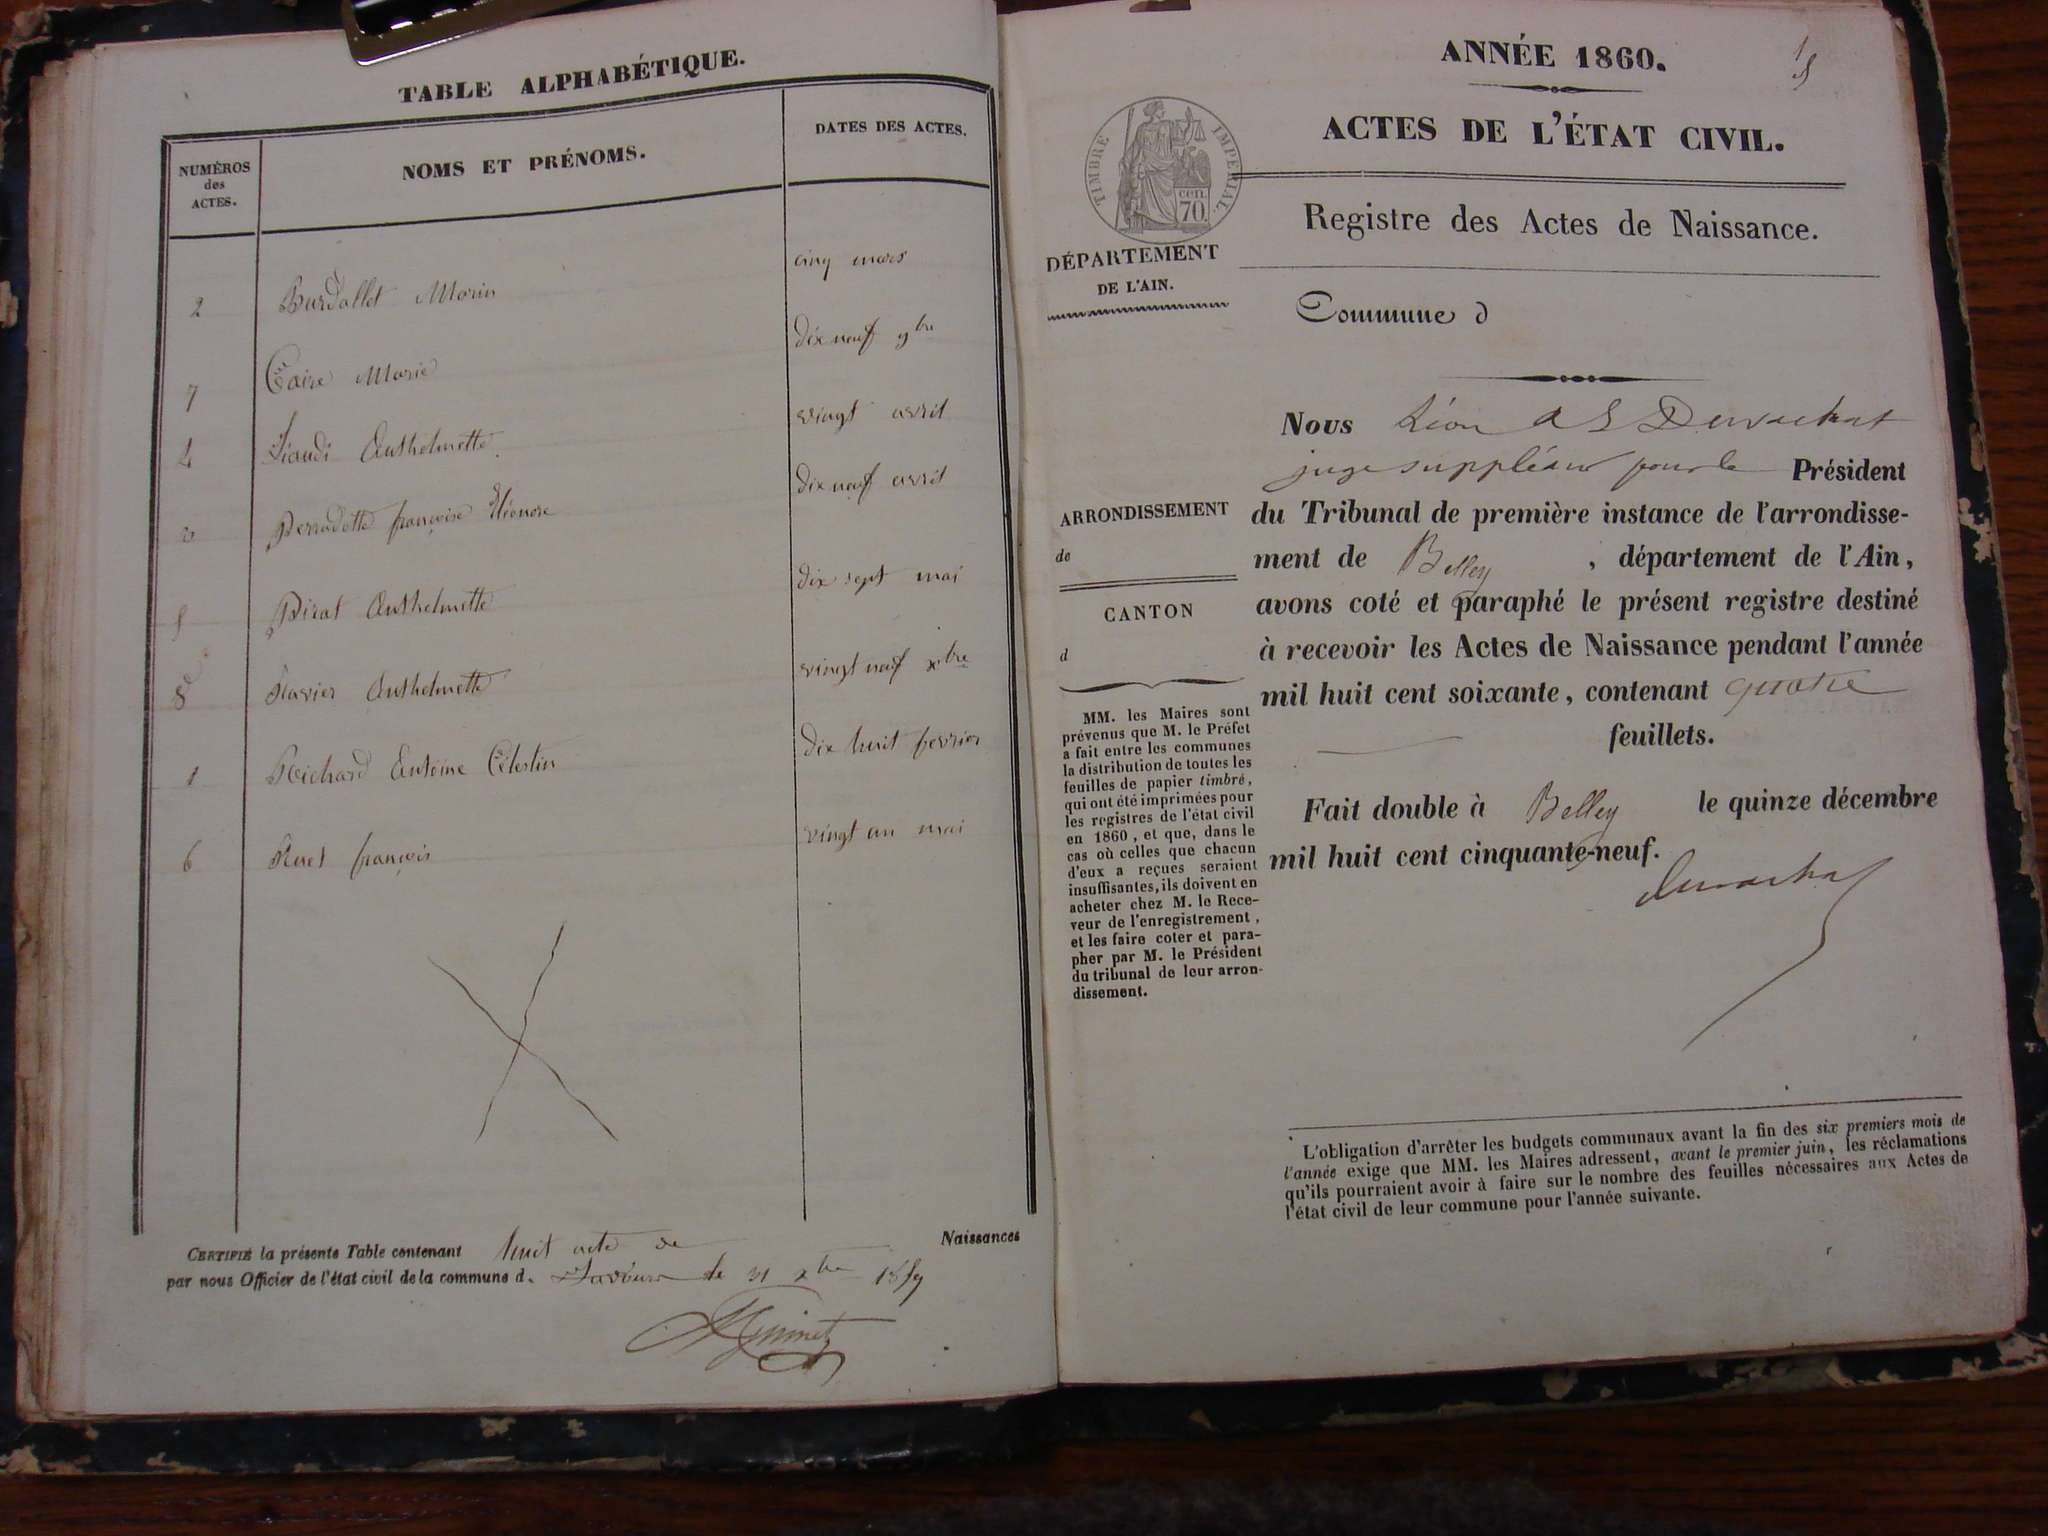 TABLE ALPHABÉTIQUE.
NUMÉROS
des
ACTES.
NOMS ET PRÉNOMS.
DATES DES ACTES.
2 Burdallet Marin cinq mars
7 Caire Marie dix neuf 9bre
4 Anthelmette vingt avril
françoise Eléonore dix neuf avril
5 Pirat Anthelmette dix sept mai
8 Ravier Anthelmette vingt neuf xbre
1 Richard Antoine Célestin dix huit fevrier
6 françois vingt un mai
CERTIFIÉ la présente Table contenant huit acte de Naissances
par nous Officier de l'état civil de la commune d. le 31 xbre 1859
1
ANNÉE 1860.
ACTES DE L'ÉTAT CIVIL.
TIMBRE IMPÉRIAL.
cen.
70.
Registre des Actes de Naissance.
DÉPARTEMENT
DE L'AIN.
Commune d
ARRONDISSEMENT
de
CANTON
d
MM. les Maires sont
prévenus que M. le Préfet
a fait entre les communes
la distribution de toutes les
feuilles de papier timbré,
qui ont été imprimées pour
les registres de l'état civil
en 1860, et que, dans le
cas où celles que chacun
d'eux a reçues seraient
insuffisantes, ils doivent en
acheter chez M. le Rece-
veur de l'enregistrement,
et les faire coter et para-
pher par M. le Président
du tribunal de leur arron-
dissement.
Nous Léon
juge suppléant pour le Président
du Tribunal de première instance de l'arrondisse-
ment de Belley, département de l'Ain,
avons coté et paraphé le présent registre destiné
à recevoir les Actes de Naissance pendant l'année
mil huit cent soixante, contenant quatre
feuillets.
Fait double à Belley le quinze décembre
mil huit cent cinquante-neuf.
L'obligation d'arrêter les budgets communaux avant la fin des six premiers mois de
l'année exige que MM. les Maires adressent, avant le premier juin, les réclamations
qu'ils pourraient avoir à faire sur le nombre des feuilles nécessaires aux Actes de
l'état civil de leur commune pour l'année suivante.